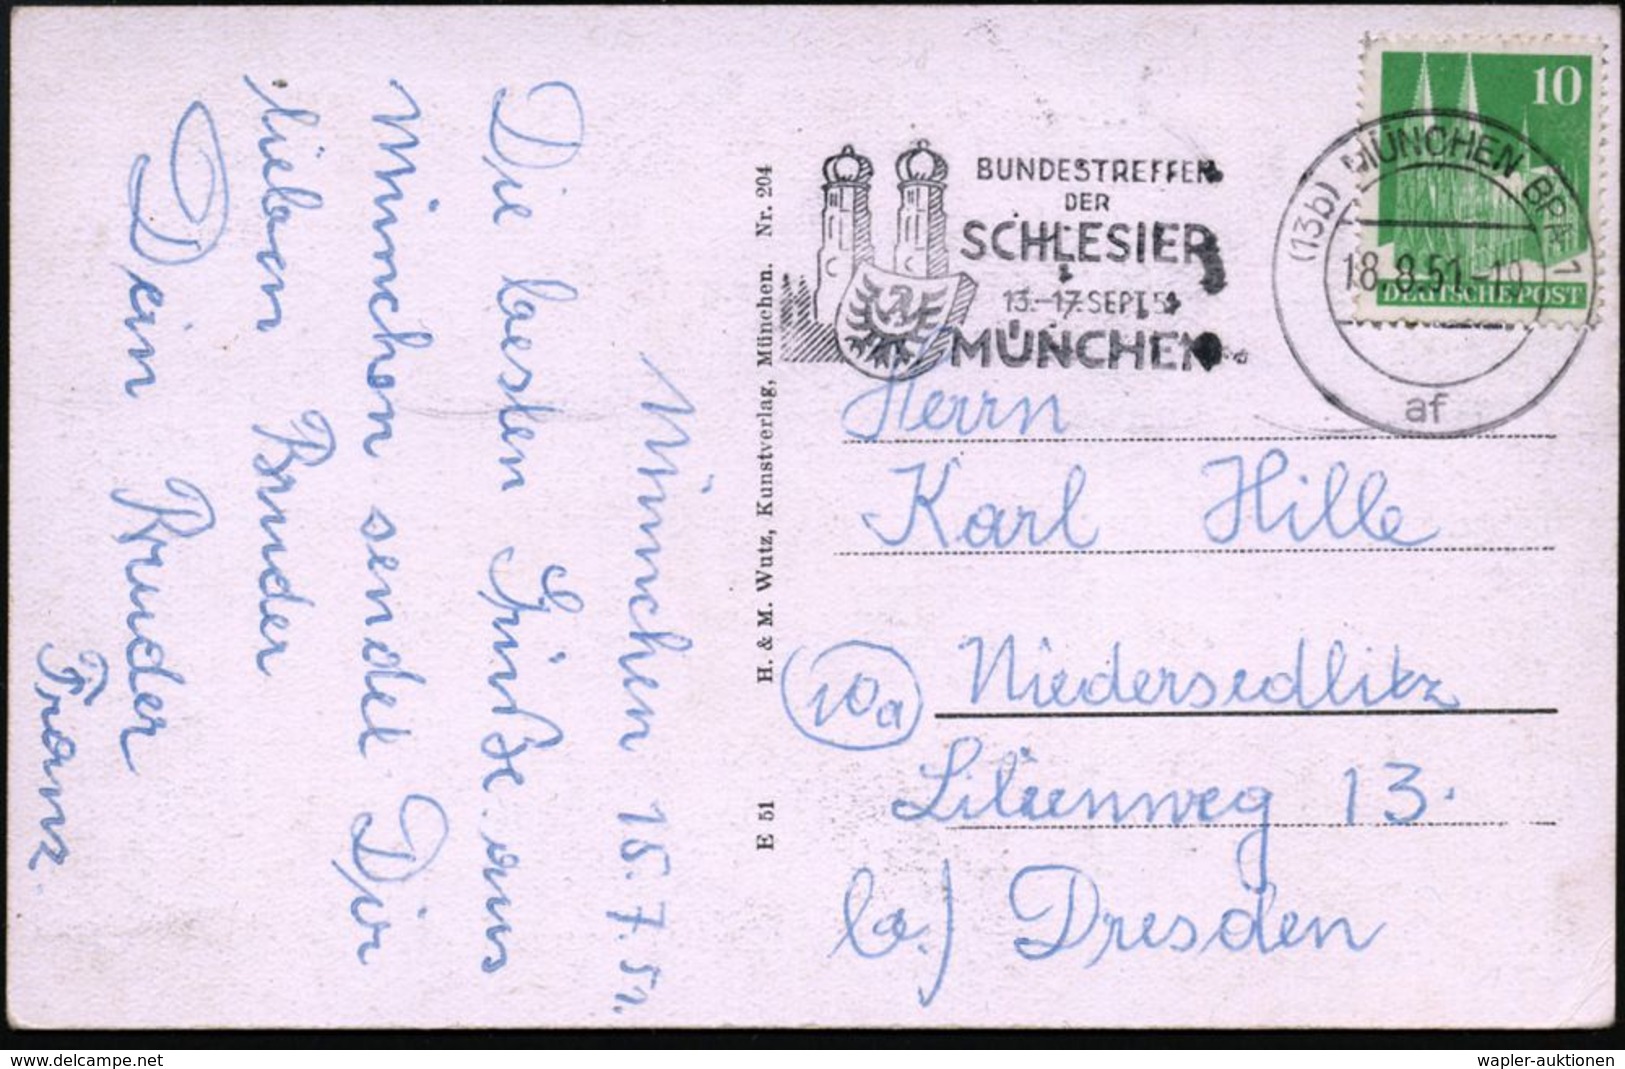 München 15.7.51.
Die besten Grüße aus
München sendet Dir
lieben Bruder
Dein Bruder
Franz.
E 51
H. & M. Wutz, Kunstverlag, München. Nr. 204
BUNDESTREFFEN
DER
SCHLESIER
13.-17. SEPT. 51
MÜNCHEN
10
DEUTSCHE POST
(13b) MÜNCHEN BPA 1
18.8.51.-19
af
Herrn
Karl Hille
10a Niedersedlitz
Lilienweg 13.
b.) Dresden
www.delcampe.net
wapler-auktionen